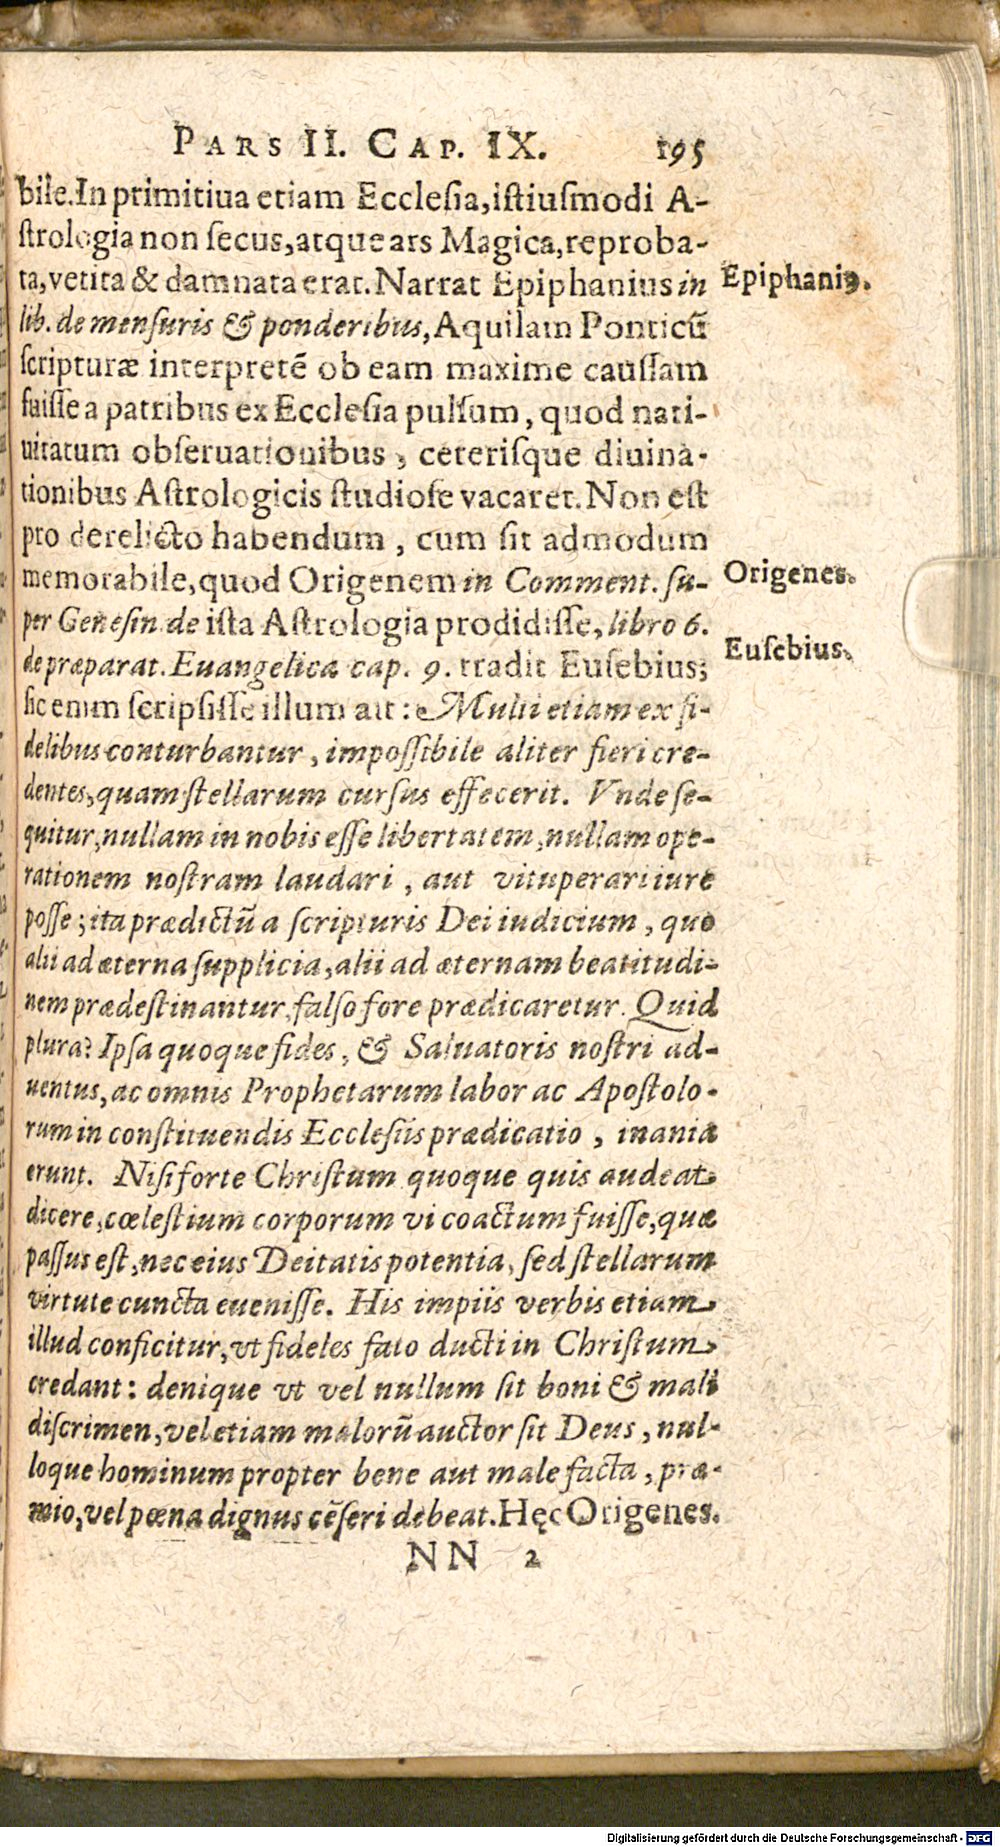 PARS II. CAP. IX. 195
bile. In primitiua etiam Ecclesia, istiusmodi A-
strologia non secus, atque ars Magica, reproba-
ta, vetita & damnata erat. Narrat Epiphanius in
Epiphaniꝰ.
lib. de mensuris & ponderibus, Aquilam Ponticũ
scripturæ interpretẽ ob eam maxime caussam
fuisse a patribus ex Ecclesia pulsum, quod nati-
uitatum obseruationibus, ceterisque diuina-
tionibus Astrologicis studiose vacaret. Non est
pro derelicto habendum, cum sit admodum
memorabile, quod Origenem in Comment. su-
Origenes.
per Genesin de ista Astrologia prodidisse, libro 6.
de præparat. Euangelica cap. 9. tradit Eusebius;
Eusebius.
sic enim scripsisse illum ait: Multi etiam ex fi-
delibus conturbantur, impossibile aliter fieri cre-
dentes, quam stellarum cursus effecerit. Vnde se-
quitur, nullam in nobis esse libertatem, nullam ope-
rationem nostram laudari, aut vituperari iure
posse; ita prædictũ a scripturis Dei iudicium, quo
alii ad æterna supplicia, alii ad æternam beatitudi-
nem prædestinantur, falso fore prædicaretur. Quid
plura? Ipsa quoque fides, & Saluatoris nostri ad-
uentus, ac omnis Prophetarum labor ac Apostolo-
rum in constituendis Ecclesiis prædicatio, inania
erunt. Nisi forte Christum quoque quis audeat
dicere, cœlestium corporum vi coactum fuisse, quæ
passus est, nec eius Deitatis potentia, sed stellarum
virtute cuncta euenisse. His impiis verbis etiam
illud conficitur, vt fideles fato ducti in Christum
credant: denique vt vel nullum sit boni & mali
discrimen, vel etiam malorũ auctor sit Deus, nul-
loque hominum propter bene aut male facta, præ-
mio, vel pœna dignus cẽseri debeat. Hęc Origenes.
NN 2
Digitalisierung gefördert durch die Deutsche Forschungsgemeinschaft - DFG